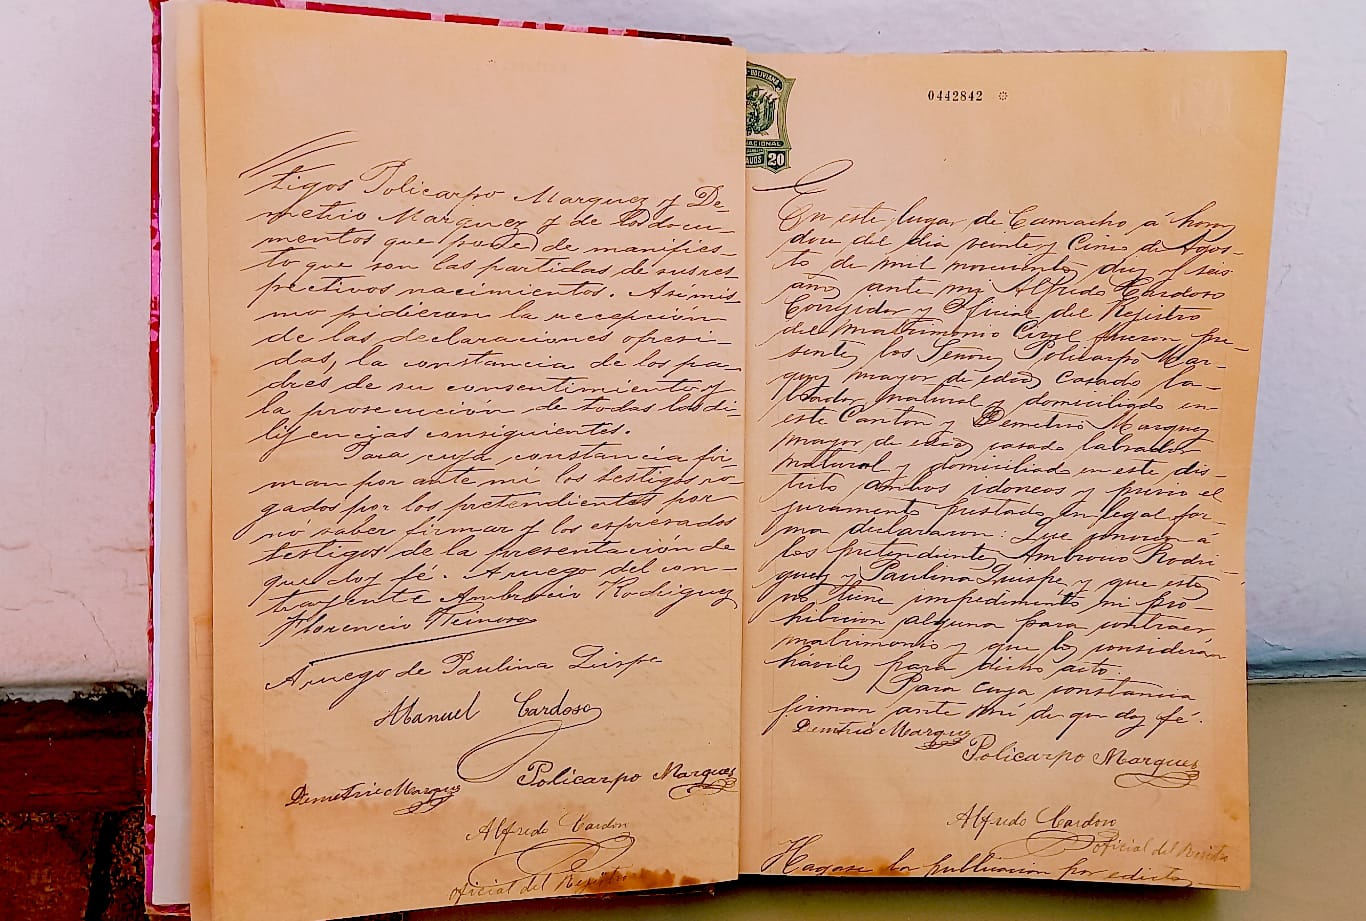 tigos Policarpo Marquez y De-
metrio Marquez y de los docu-
mentos que pone de manifies-
to que son las partidas de sus res
pectivos nacimientos. Asimis-
mo pidieron la recepción
de las declaraciones ofreci-
das, la constancia de los pa-
dres de su consentimiento y
la prosecución de todas las di-
ligencias consiguientes.
Para cuya constancia fir-
man por ante mi los testigos ro-
gados por los pretendientes por
nó saber firmar y los espresados
testigos de la presentación de
que doy fé. A ruego del con-
trayente Ambrocio Rodriguez
Florencio
A ruego de Paulina Quispe
Manuel Cardoso
Demetrio Marquez Policarpo Marquez
Alfredo Cardoso
oficial del Registro
BOLIVIANA
NACIONAL
20
0442842
En este lugar de Camacho, á horas
doce del dia veinte y Cinco de Agos-
to de mil novecientos diez y seis
años ante mi Alfredo Cardoso
Corregidor y Oficial del Registro
del Matrimonio Civil fueron pre-
sentes los Señores Policarpo Mar-
quez mayor de edad casado la-
brador, natural y domiciliado en
este Canton y Demetrio Marquez
mayor de edad casado labrador
natural y domiciliado en este dis-
trito ambos idoneos y previo el
juramento prestado en legal for-
ma declararon: Que conocen á
los pretendientes Ambrocio Rodri-
guez y Paulina Quispe y que estos
no tiene impedimento ni pro-
hibicion alguna para contraer
matrimonio y que los considerán
haviles para dicho acto.
Para cuya constancia
firman ante mi de que doy fé.
Demetrio Marquez
Policarpo Marquez
Alfredo Cardoso
Oficial del Registro
Hagase la publicacion por edictos